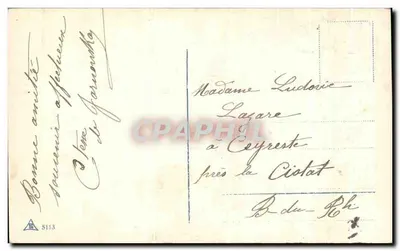 Bonne amitié
souvenir affectueux
de
Madame Ludovic
Lazare
à Ceyreste
près la Ciotat
B. du Rh
CPAPHIL
5113